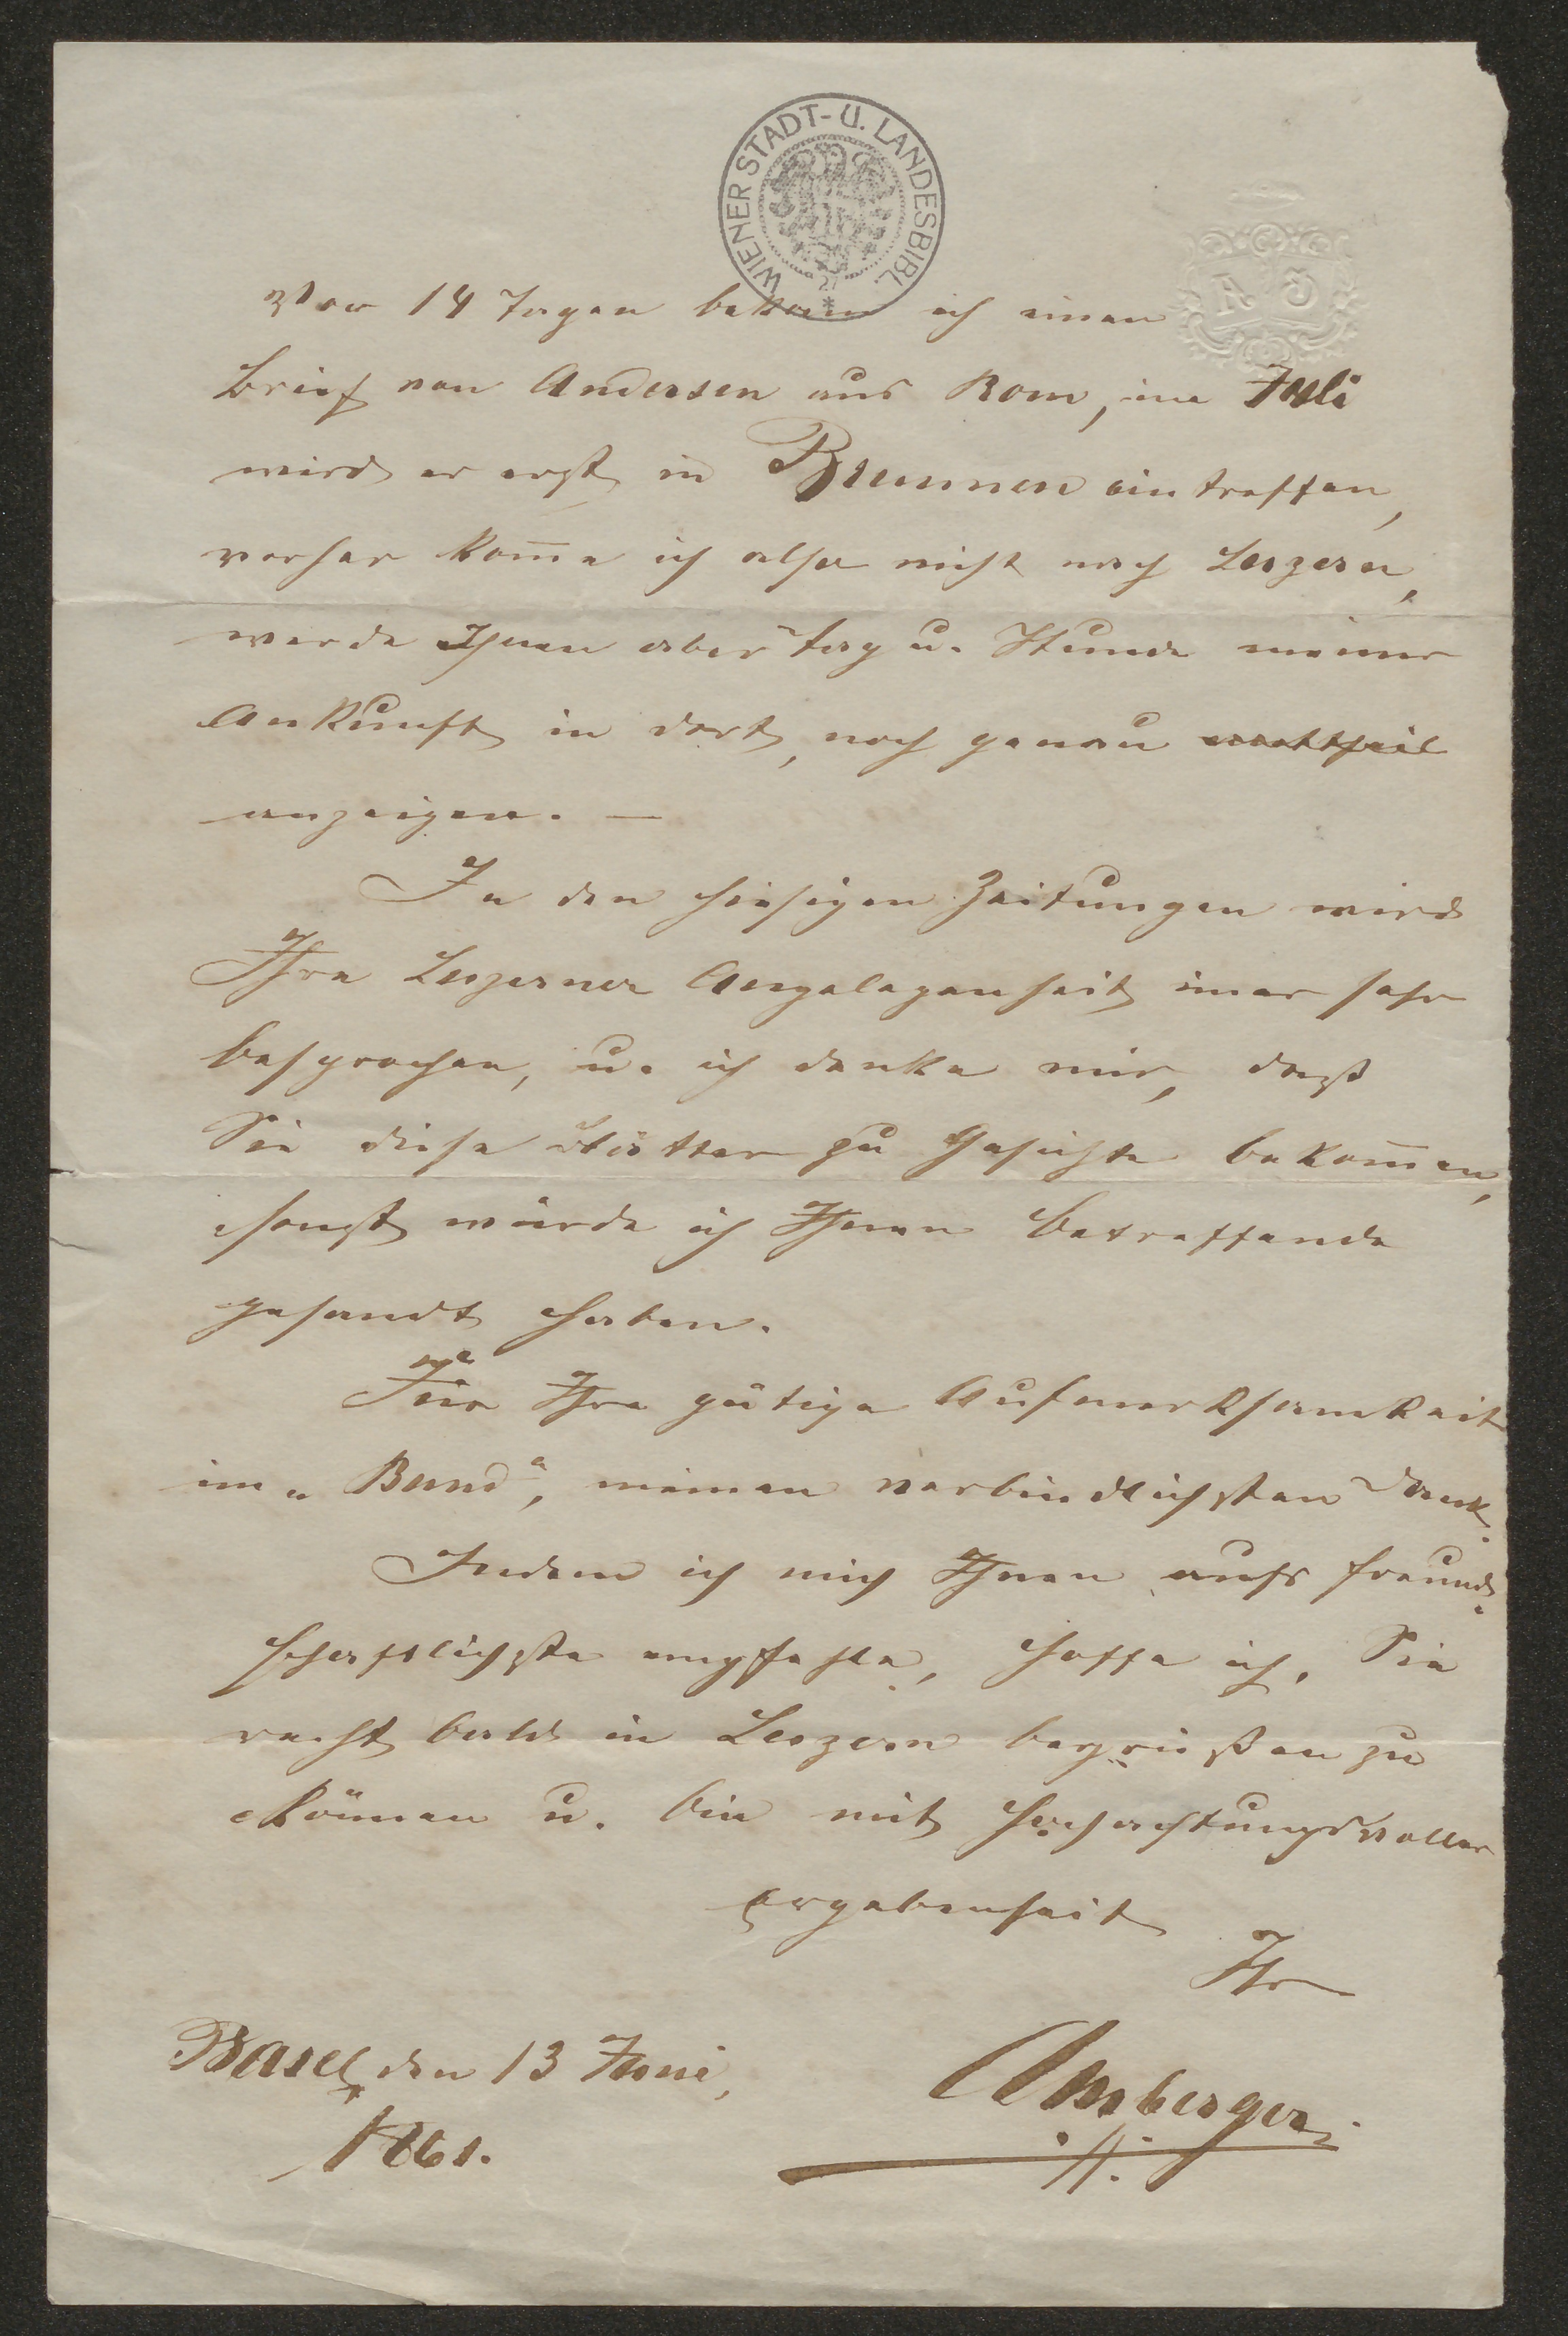 WIENER STADT- U. LANDESBIBL.
27
G A
Vor 14 Tagen bekam ich einen
Brief von Andersen aus Rom, im Juli
wird er erst in Brunnen eintreffen,
vorher kom̅e ich also nicht nach Luzern,
werde Ihnen aber Tag u. Stunde meiner
Ankunft in dort, noch genau
anzeigen. —
In den hiesigen Zeitungen wird
Ihre Luzerner Angelegenheit im̅er sehr
besprochen, u. ich denke mir, daß
Sie diese Blätter zu Gesichte bekom̅en,
sonst würde ich Ihnen Betreffende
gesandt haben.
Für Ihre gütige Aufmerksamkeit
im „Bund“, meinen verbindlichsten Dank.
Indem ich mich Ihnen aufs freund-
schaftlichste empfehle, hoffe ich, Sie
recht bald in Luzern begrüßen zu
können u. bin mit hochachtungsvoller
Ergebenheit
Ihr
Basel, den 13 Juni,
Amberger
1861.